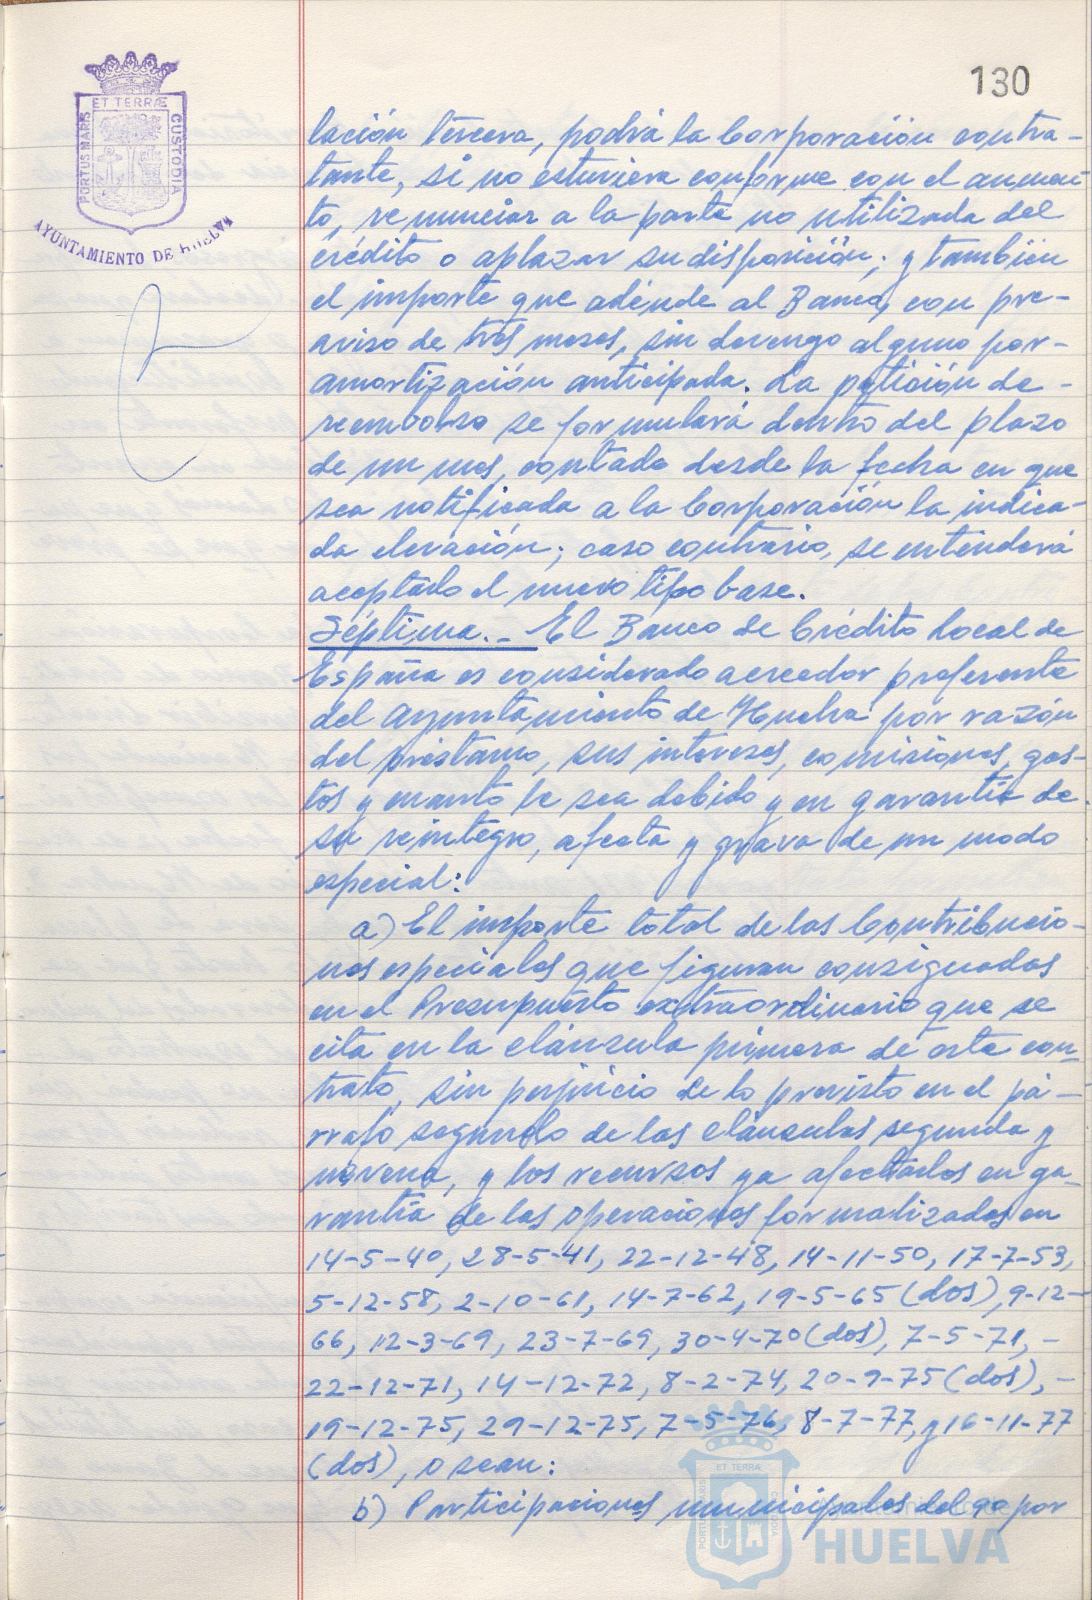 130
PORTUS MARIS
ET TERRÆ
CUSTODIA
AYUNTAMIENTO DE HUELVA
lación tercera, podrá la Corporación contra-
tante, si no estuviera conforme con el aumen-
to, renunciar a la parte no utilizada del
crédito o aplazar su disposición; y también
el importe que adeude al Banco, con pre-
aviso de tres meses, sin devengo alguno por-
amortización anticipada. La petición de-
reembolso se formulará dentro del plazo
de un mes, contado desde la fecha en que
sea notificada a la Corporación la indica-
da elevación; caso contrario, se entenderá
aceptado el nuevo tipo base.
Séptima.- El Banco de Crédito Local de
España es considerado acreedor preferente
del Ayuntamiento de Huelva por razón
del préstamo, sus intereses, comisiones, gas-
tos y cuanto le sea debido y en garantía de
su reintegro, afecta y grava de un modo
especial:
a) El importe total de las Contribucio-
nes especiales que figuran consignadas
en el Presupuesto extraordinario que se
cita en la cláusula primera de este con-
trato, sin perjuicio de lo previsto en el pá-
rrafo segundo de las cláusulas segunda y
novena, y los recursos ya afectados en ga-
rantía de las operaciones formalizadas en
14-5-40, 28-5-41, 22-12-48, 14-11-50, 17-7-53,
5-12-58, 2-10-61, 14-7-62, 19-5-65 (dos), 9-12-
66, 12-3-69, 23-7-69, 30-4-70 (dos), 7-5-71,-
22-12-71, 14-12-72, 8-2-74, 20-9-75 (dos),-
19-12-75, 29-12-75, 7-5-76, 8-7-77, y 16-11-77
(dos), o sean:
b) Participaciones municipales del 90 por
ET TERRÆ
HUELVA